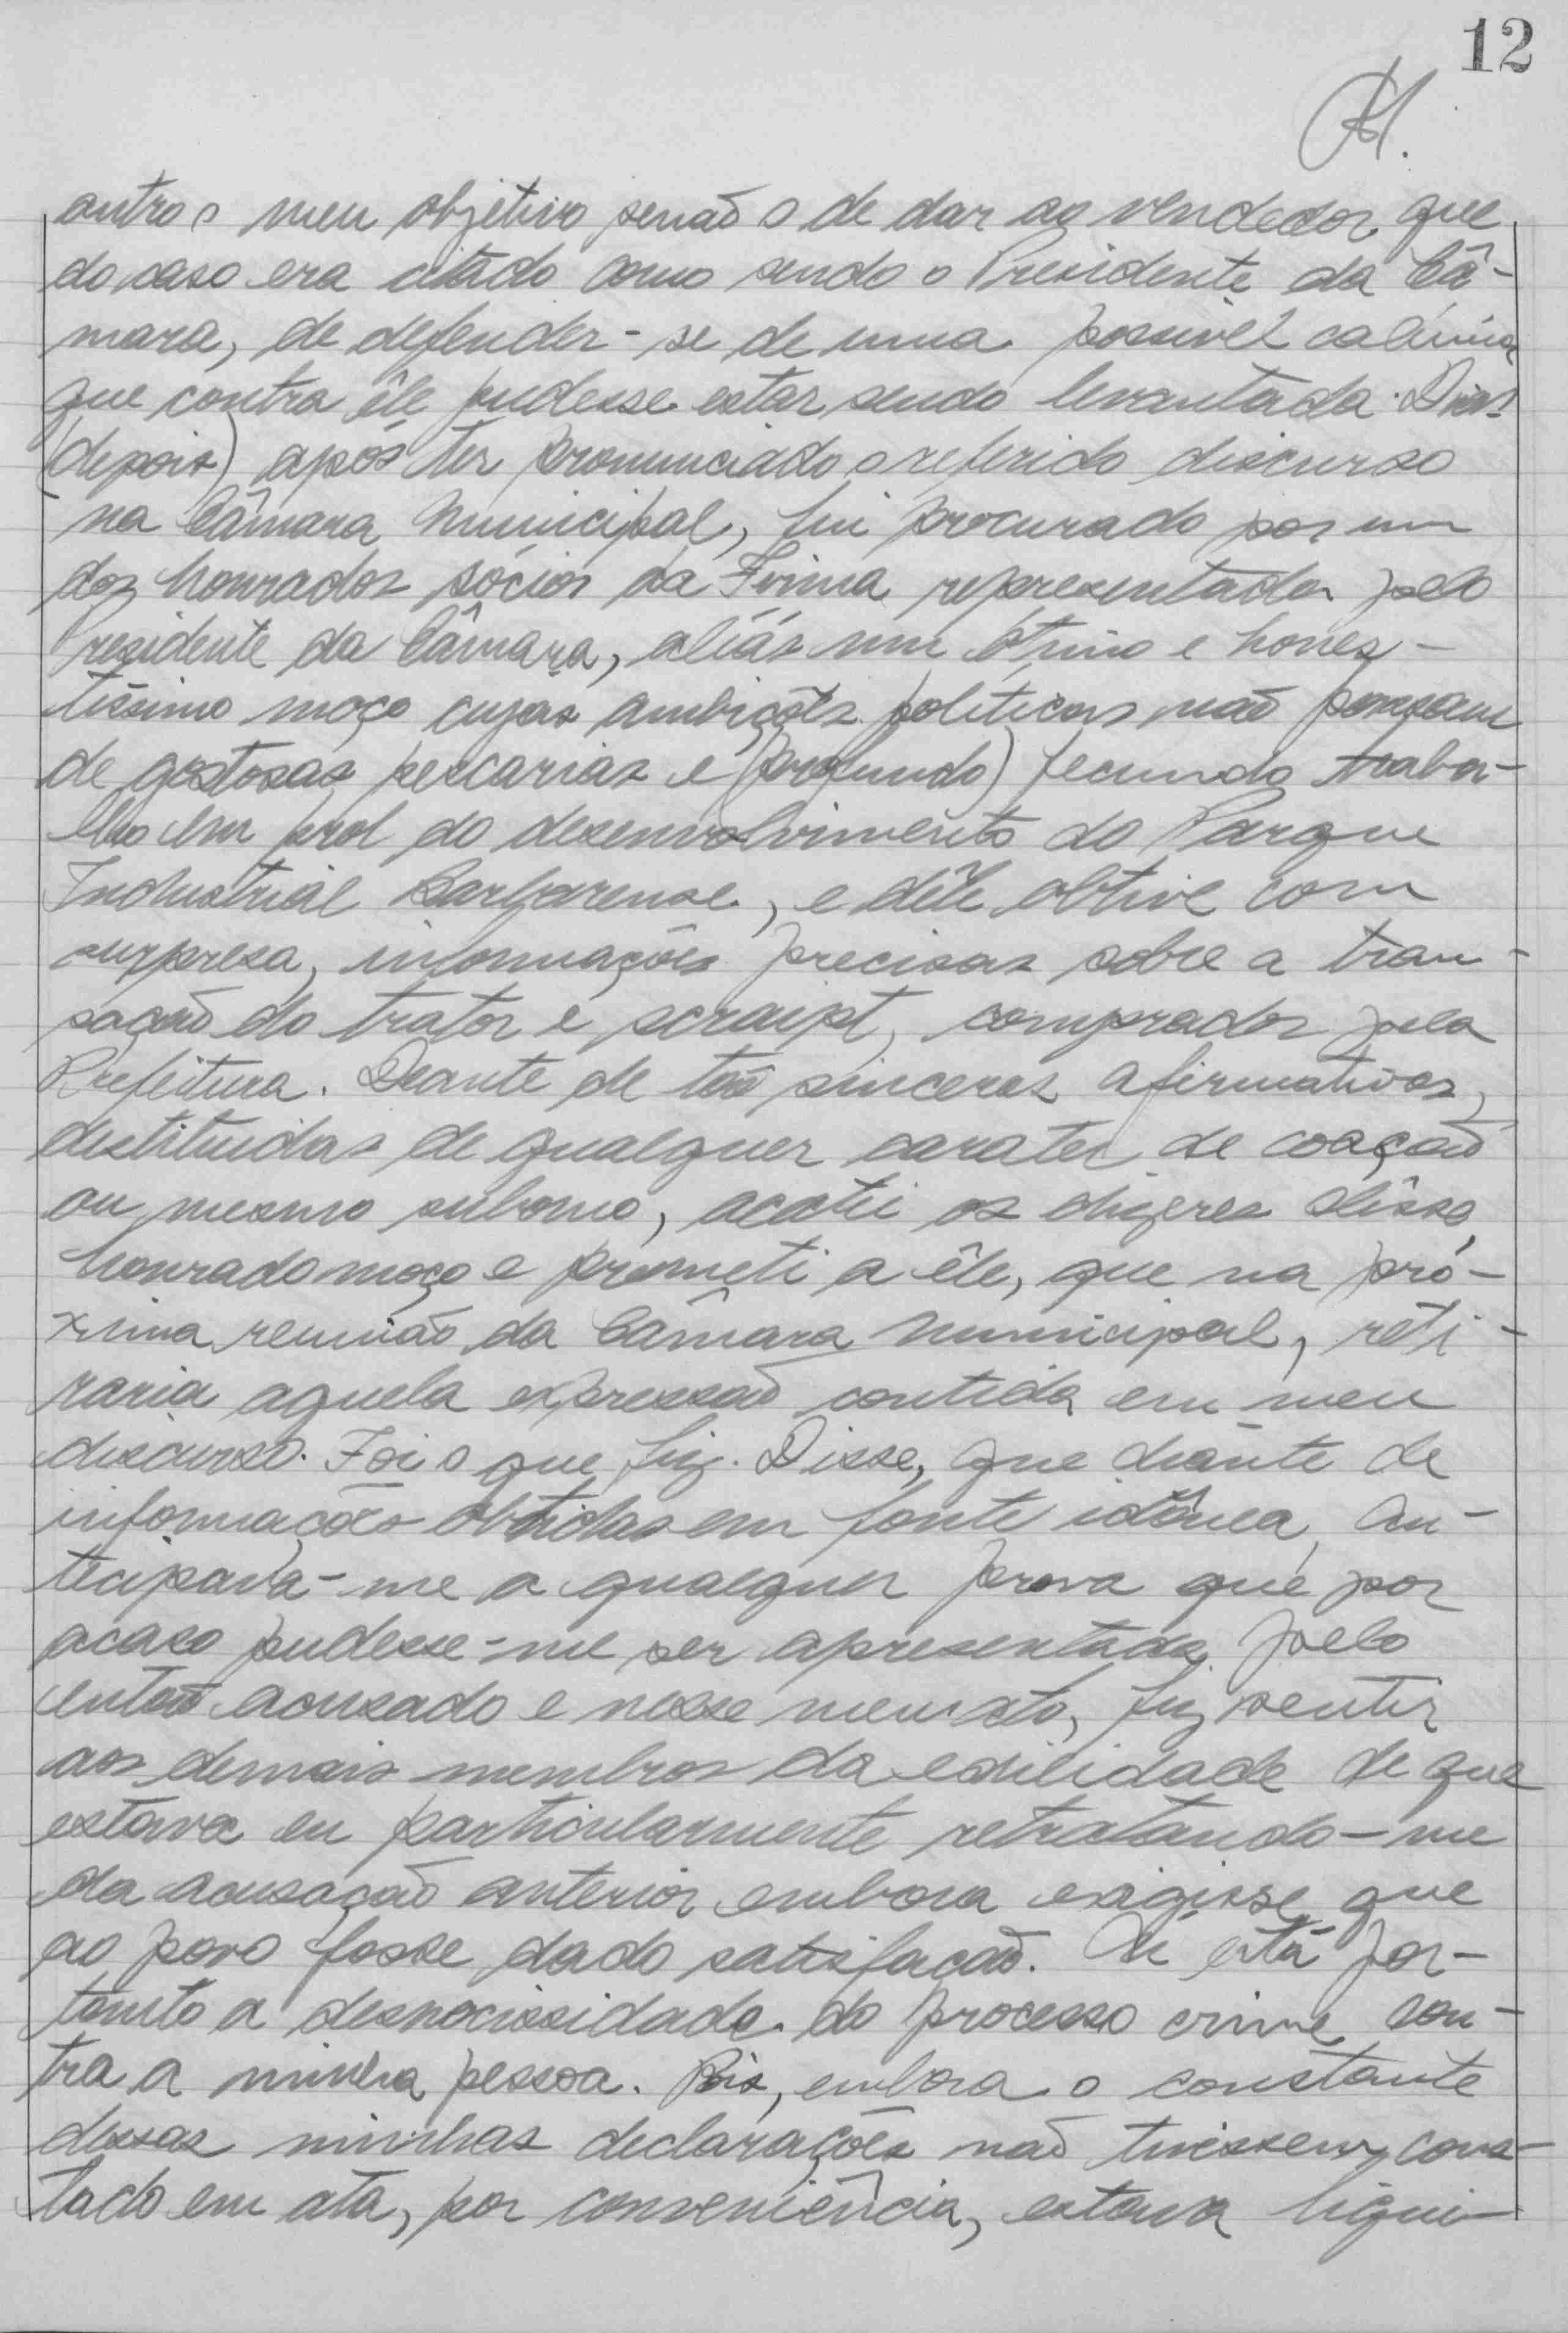 12
outro o meu objetivo senão o de dar ao vendedor, que
do caso era citado como sendo o Presidente da Câ-
mara, de defender-se de uma possivel calúnia
que contra êle pudesse estar sendo levantada. Dias
(depois) após ter pronunciado o referido discurso
na Câmara Municipal, fui procurado por um
dos honrados sócios da Firma representada pelo
Presidente da Câmara, aliás um ótimo e hones-
tissimo moço cujas ambições politicas não passam
de gostosas pescarias e (profundo) fecundo traba-
lho em prol do desenvolvimento do Parque
Industrial Barbarense, e dêle obtive com
surpresa, informações precisas sobre a tran-
sação do trator e scraipt, comprados pela
Prefeitura. Deante de tão sinceras afirmativas,
destituidas de qualquer carater de coação
ou mesmo suborno, acatei os dizeres dêsse
honrado moço e prometi a êle, que na pró-
xima reunião da Câmara Municipal, reti-
raria aquela expressão contida em meu
discurso. Foi o que fiz. Disse, que diante de
informações obtidas em fonte idônea, an-
tecipava-me a qualquer prova que por
acaso pudesse-me ser apresentada pelo
então acusado e nesse memento, fiz sentir
aos demais membros da edilidade de que
estava eu particularmente retratando-me
da acusação anterior embora exigisse que
ao povo fosse dado satisfação. Ai está por-
tanto a desnecissidade do processo crime con-
tra a minha pessoa. Pois, embora o constante
dessas minhas declarações não tivissem cons-
tado em ata, por conveniência, estava liqui-